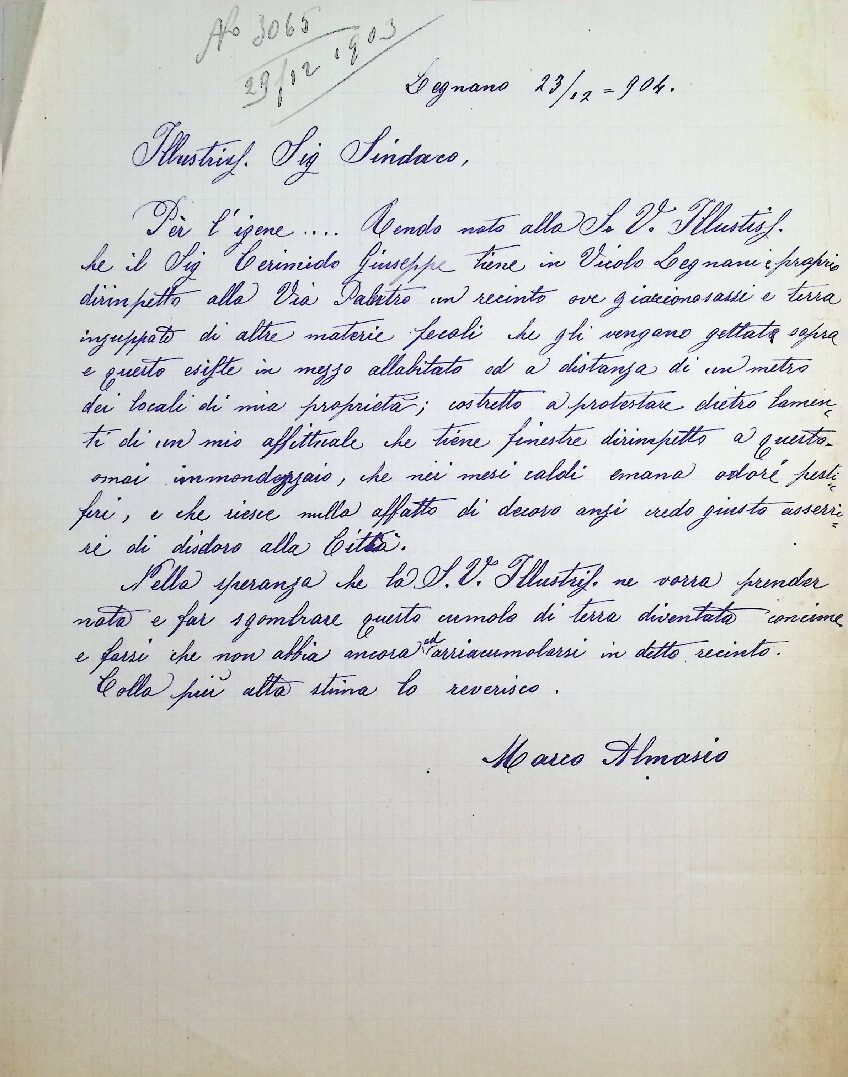 No 3065
29/12 1903
Legnano 23/12 = 904.
Illustriss. Sig Sindaco,
Pèr l'igene .... Rendo noto alla S. V. Illustiss.
he il Sig Cerimedo Giuseppe tiene in Vicolo Legnani è proprio
dirimpetto alla Via Palestro un recinto ove giaccono sassi e terra
inzuppato di altre materie fecali che gli vengano gettate sopra
e questo esiste in mezzo allabitato ed a distanza di un metro
dei locali di mia proprietà; costretto a protestare dietro lamen-
ti di un mio affittuale che tiene finestre dirimpetto a questo
omai immondezzaio, che nei mesi caldi emana odore pesti-
feri, e che riesce nulla affatto di decoro anzi credo giusto asseri-
re di disdoro alla Città.
Nella speranza che la S. V. Illustris. ne vorra prender
nota e far sgombrare questo cumolo di terra diventata concime
e farsi che non abbia ancora ed arriacumolarsi in detto recinto.
Colla più alta stima lo reverisco.
Marco Almasio